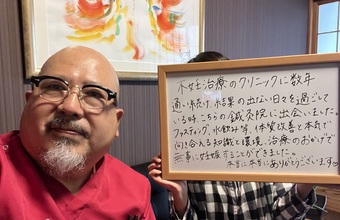 不妊治療のクリニックに数年
通い続け、結果の出ない日々を過ごして
いる時、こちらの鍼灸院に出会いました。
ファスティング、水飲み等、体質改善と本気で
向き合える知識と環境、治療のおかげで
無事に妊娠することができました。
本当に本当にありがとうございます♡